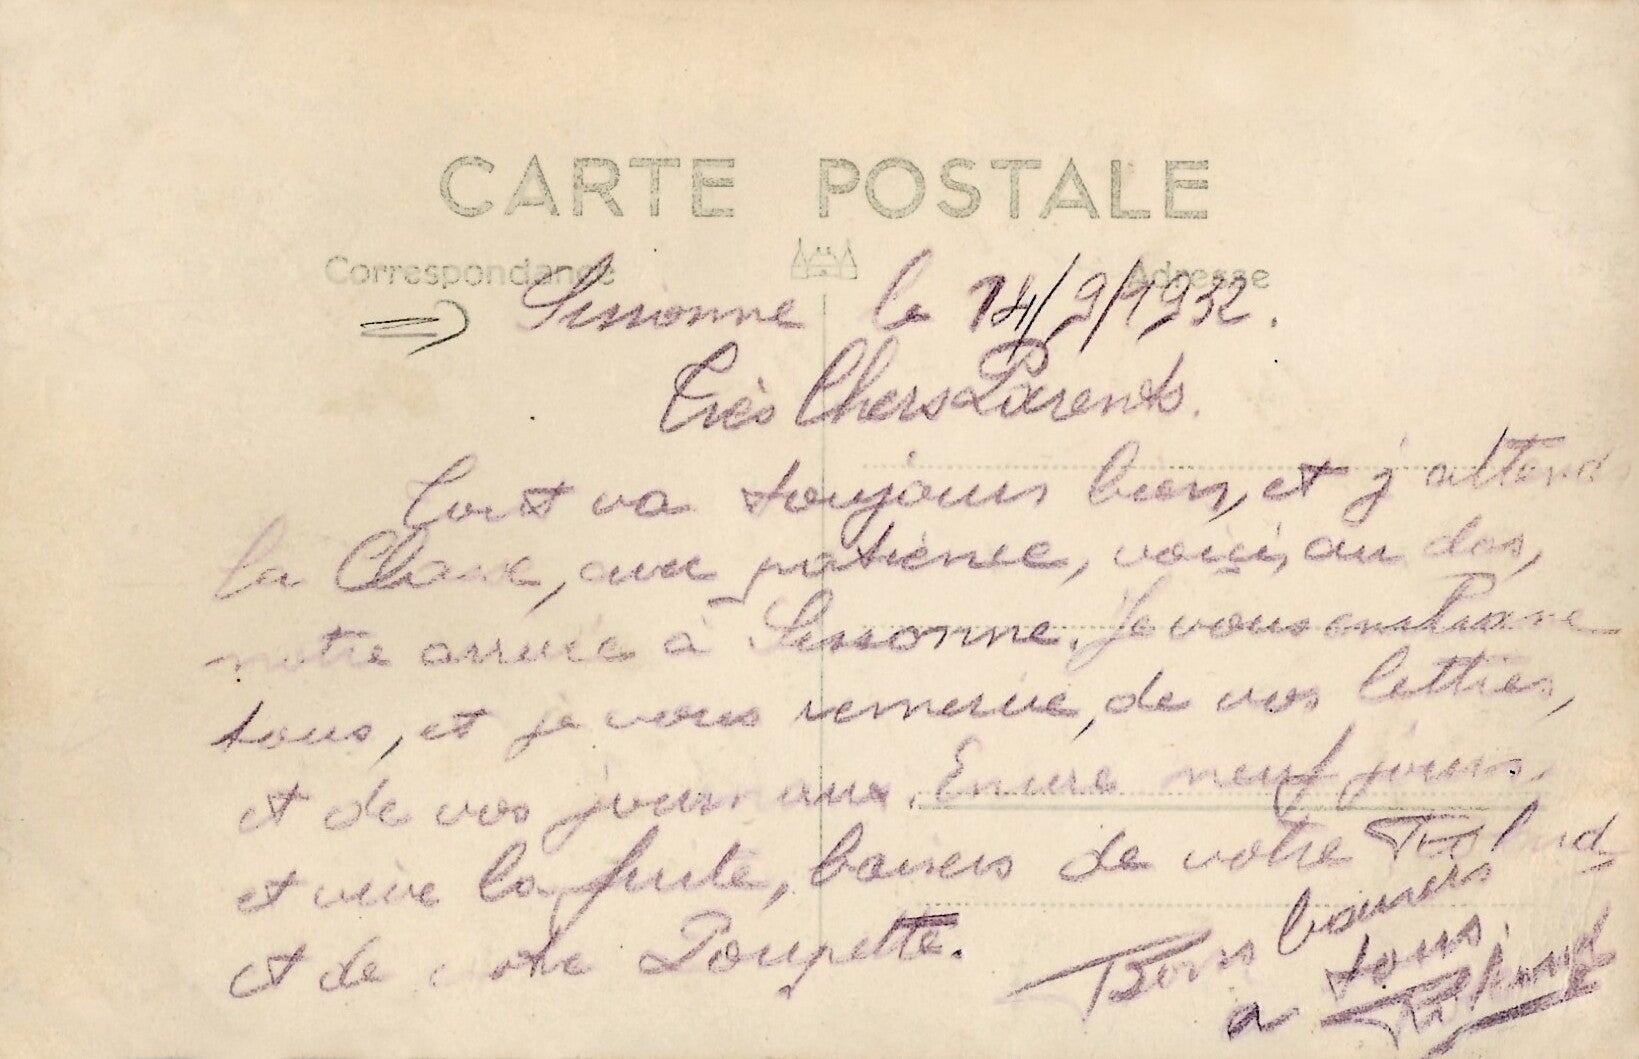 CARTE POSTALE
Correspondance Adresse
Sissonne le 14/9/1932.
Très Chers Parents.
Tout va toujours bien, et j'attends
la Classe, avec patience, voici, au dos,
notre arrivée à Sissonne. Je vous
tous, et je vous remercie, de vos lettres,
et de vos journaux. Encore neuf jours,
et vive la fuite, baisers de votre Roland
et de votre Poupette.
Bons baisers
a tous.
Roland